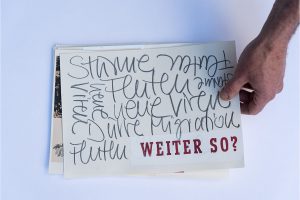 Stürme
Fluten
Fluten
Stürme
neue
Viren
neue Viren
Dürre Migration
Fluten
WEITER SO?